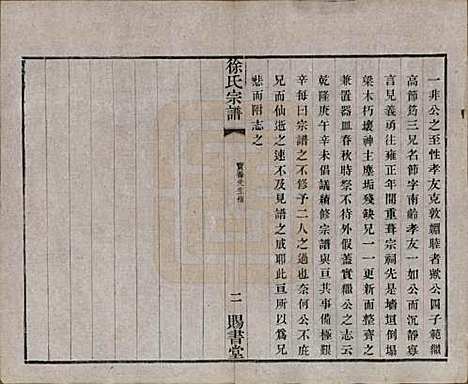 一非公之至性孝友克敦嫺睦者歟公四子範繼
高節筠三兄名節字南齡孝友一如公而沉靜寡
言見義勇往雍正年間重葺宗祠先是墙垣倒塌
梁木朽壞神主塵垢殘缺兄一一更新而整齊之
兼置器皿春秋時祭不待外假蓋實繼公之志云
乾隆庚午辛未倡議續修宗譜與亘其事備極艱
辛每曰宗譜之不修予二人之過也奈何公不庇
兄而仙逝之速不及見譜之成耶此亘所以為兄
悲而附志之
徐氏宗譜
寶善先生傳
二
賜書堂